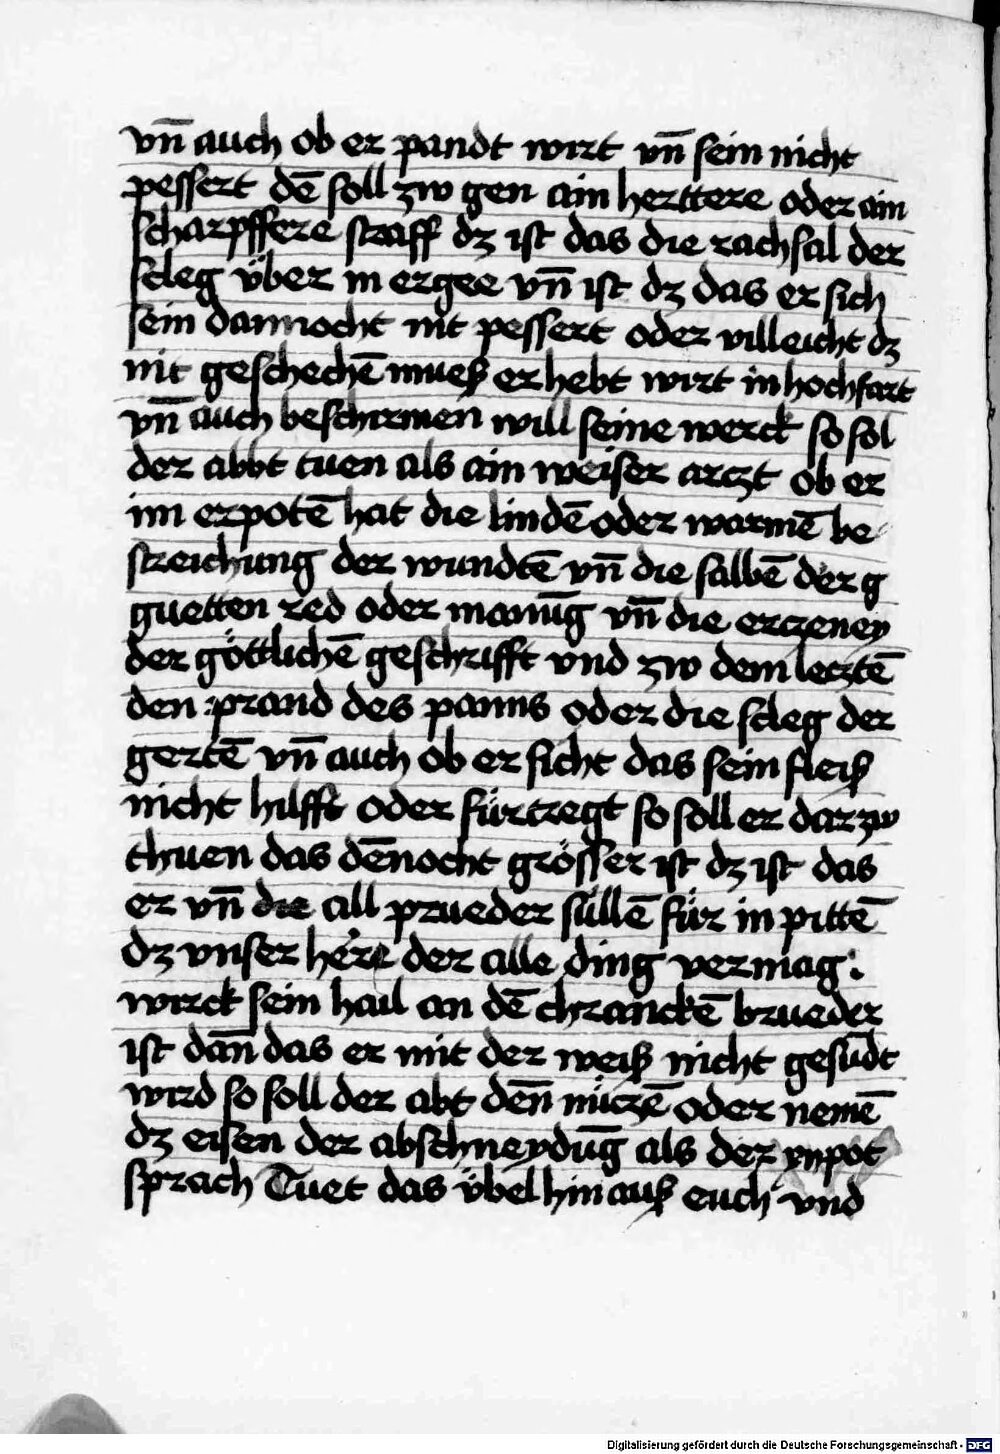 vn̄ auch ob er pandt wirt vn̄ sein nicht
pessert dē soll zw gen ain herttere oder ain
scharpffere straff dz ist das die rachsal der
scleg über in ergee vn̄ ist dz das er sich
sein dannocht nit pessert oder villeicht dz
nit geschechē muesß erhebt wirt in hochfart
vn̄ auch beschirmen will seine werck so sol
der abbt tuen als ain weiser arczt ob er
im erpotē hat die lindē oder warmē be
streichung der wundtē vn̄ die salbē der g
guetten red oder manūg vn̄ die erczeney
der göttlichē geschrifft vnd zw dem lecztē
den prand des panns oder die scleg der
gertē vn̄ auch ob er sicht das sein fleiß
nicht hilfft oder fürtregt so soll er darzw
thuen das dēnocht grösser ist dz ist das
er vn̄ die all prueder süllē für in pittē
dz vnser here der alle ding vermag :
wirck sein hail an dē chranckē brueder
ist dān das er mit der weiß nicht gesūdt
wird so soll der abt dēn nüczē oder nemē
dz eisen der abschneydūg als der xnpot
sprach Tuet das übel hin auß euch vnd
Digitalisierung gefördert durch die Deutsche Forschungsgemeinschaft - DFG